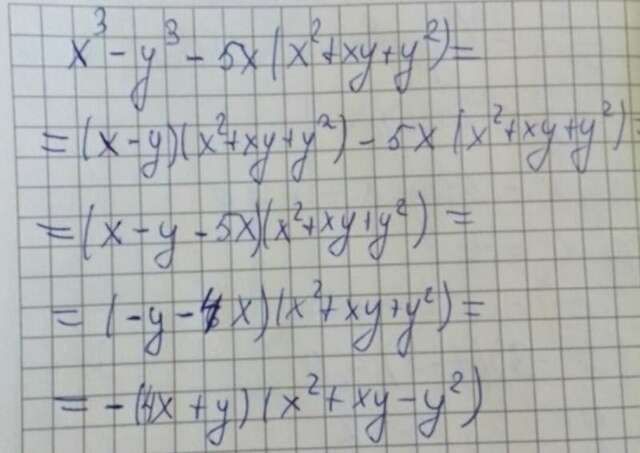 x³ - y³ - 5x(x² + xy + y²) =
= (x - y)(x² + xy + y²) - 5x(x² + xy + y²) =
= (x - y - 5x)(x² + xy + y²) =
= (-y - 4x)(x² + xy + y²) =
= -(4x + y)(x² + xy - y²)